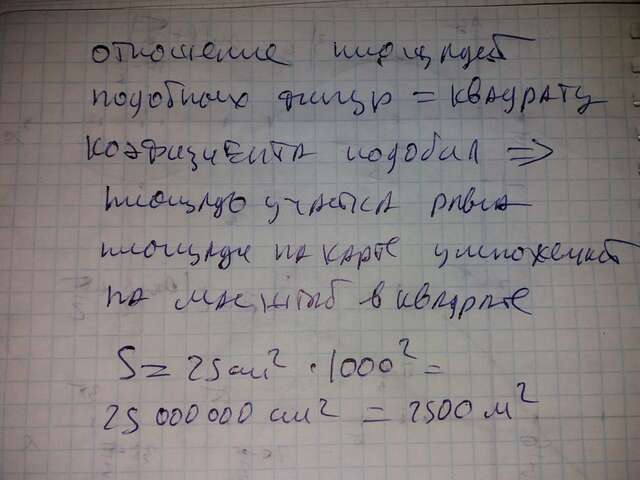 отношение площадей
подобных фигур = квадрату
коэфициента подобия ⇒
площадь участка равна
площади на карте умноженной
на масштаб в квадрате
S = 25 см² · 1000² =
25 000 000 см² = 2500 м²